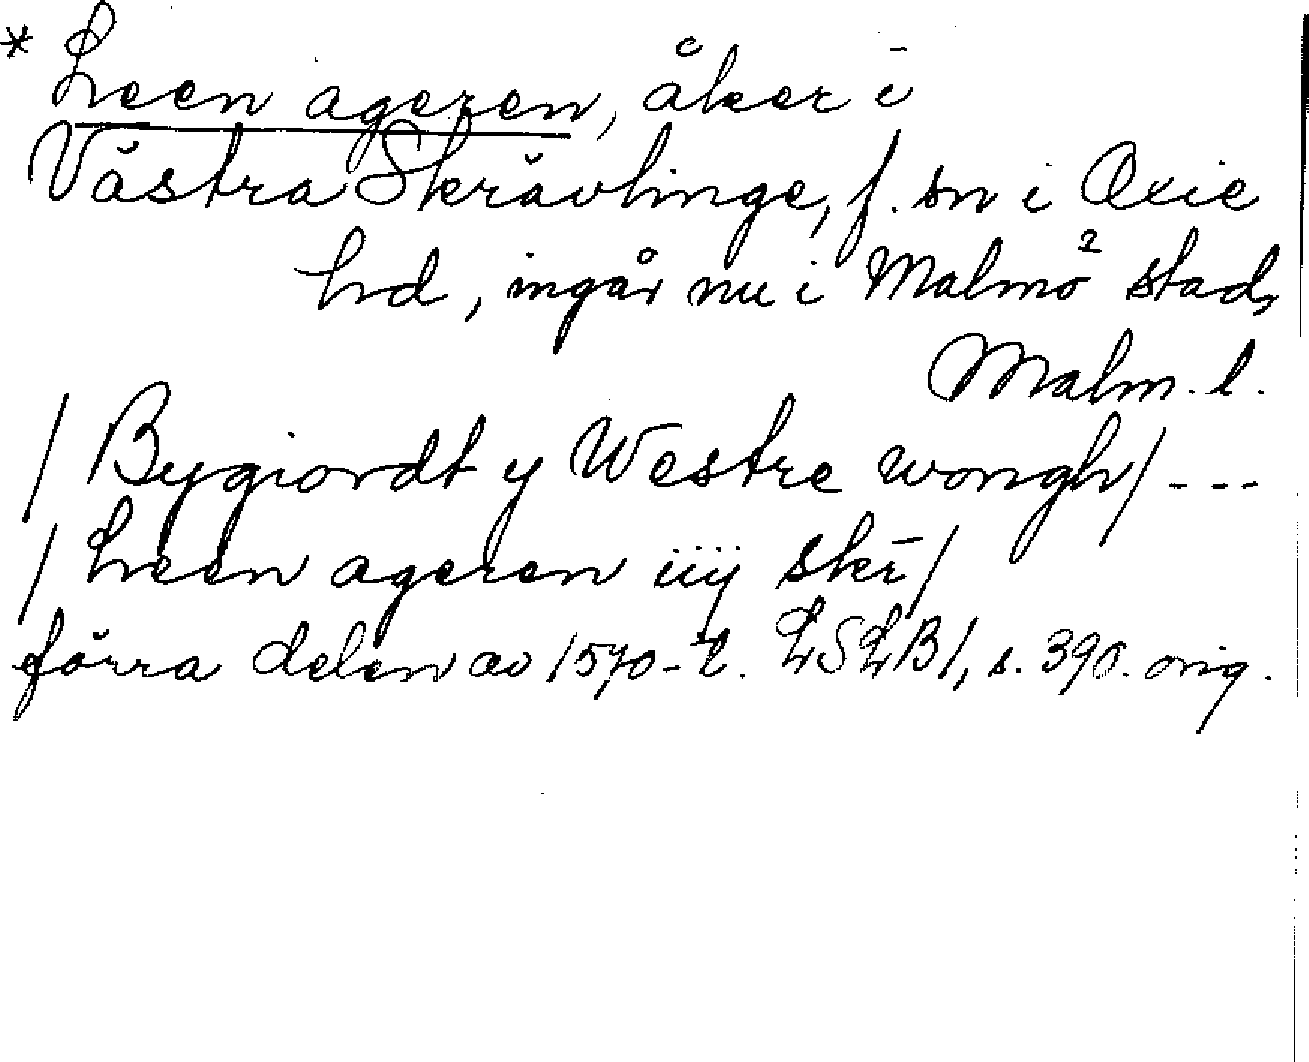 * Leen ageren, åker i
Västra Skrävlinge, f. sn i Oxie
hd, ingår nu i Malmö stad,
Malm. l.
/ Bygiordt y Westre wongh / ---
/ Leen ageren iiij skr̄ /
förra delen av 1570-t. LSLB1, s. 390. orig.